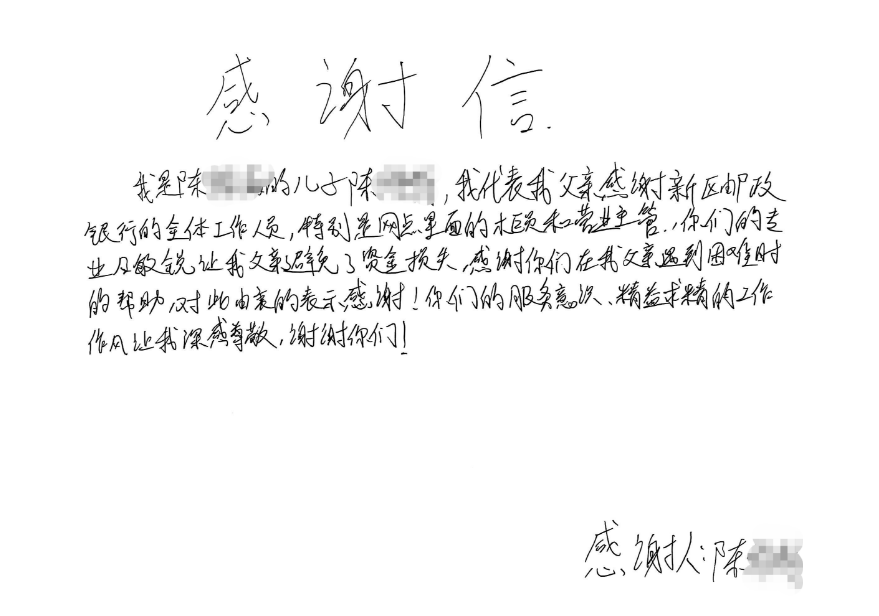 感谢信.
我是陈的儿子陈,我代表我父亲感谢新区邮政
银行的全体工作人员,特别是网点里面的柜员和营业主管.,你们的专
业及敏锐让我父亲避免了资金损失,感谢你们在我父亲遇到困难时
的帮助,对此由衷的表示感谢!你们的服务意识、精益求精的工作
作风让我深感尊敬,谢谢你们!
感谢人:陈